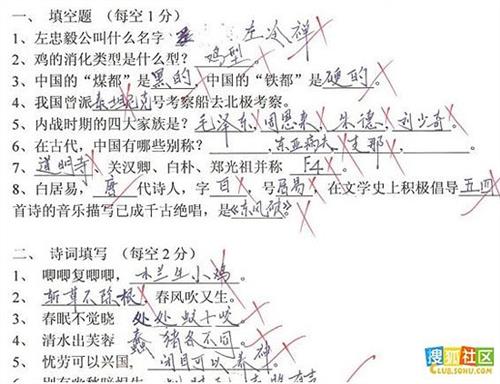 一、 填空题 (每空1分)
1、左忠毅公叫什么名字 左冷禅
2、鸡的消化类型是什么型? 鸡型
3、中国的“煤都”是黑的,中国的“铁都”是硬的。
4、我国曾派泰坦尼克号考察船去北极考察。
5、内战时期的四大家族是? 毛泽东、周恩来、朱德、刘少奇。
6、在古代,中国有哪些别称? 、东亚病夫、支那、
7、道明寺、关汉卿、白朴、郑光祖并称 F4。
8、白居易,唐代诗人,字白,号居易,在文学史上积极倡导五四
首诗的音乐描写已成千古绝唱,是《东风破》。
二、 诗词填写 (每空2分)
1、唧唧复唧唧,木兰生小鸡。
2、斩草不除根,春风吹又生。
3、春眠不觉晓 处处蚊子咬。
4、清水出芙蓉 蠢猪各不同。
5、忧劳可以兴国, 闭目可以养神
搜狐社区
CLUB.SOHU.COM